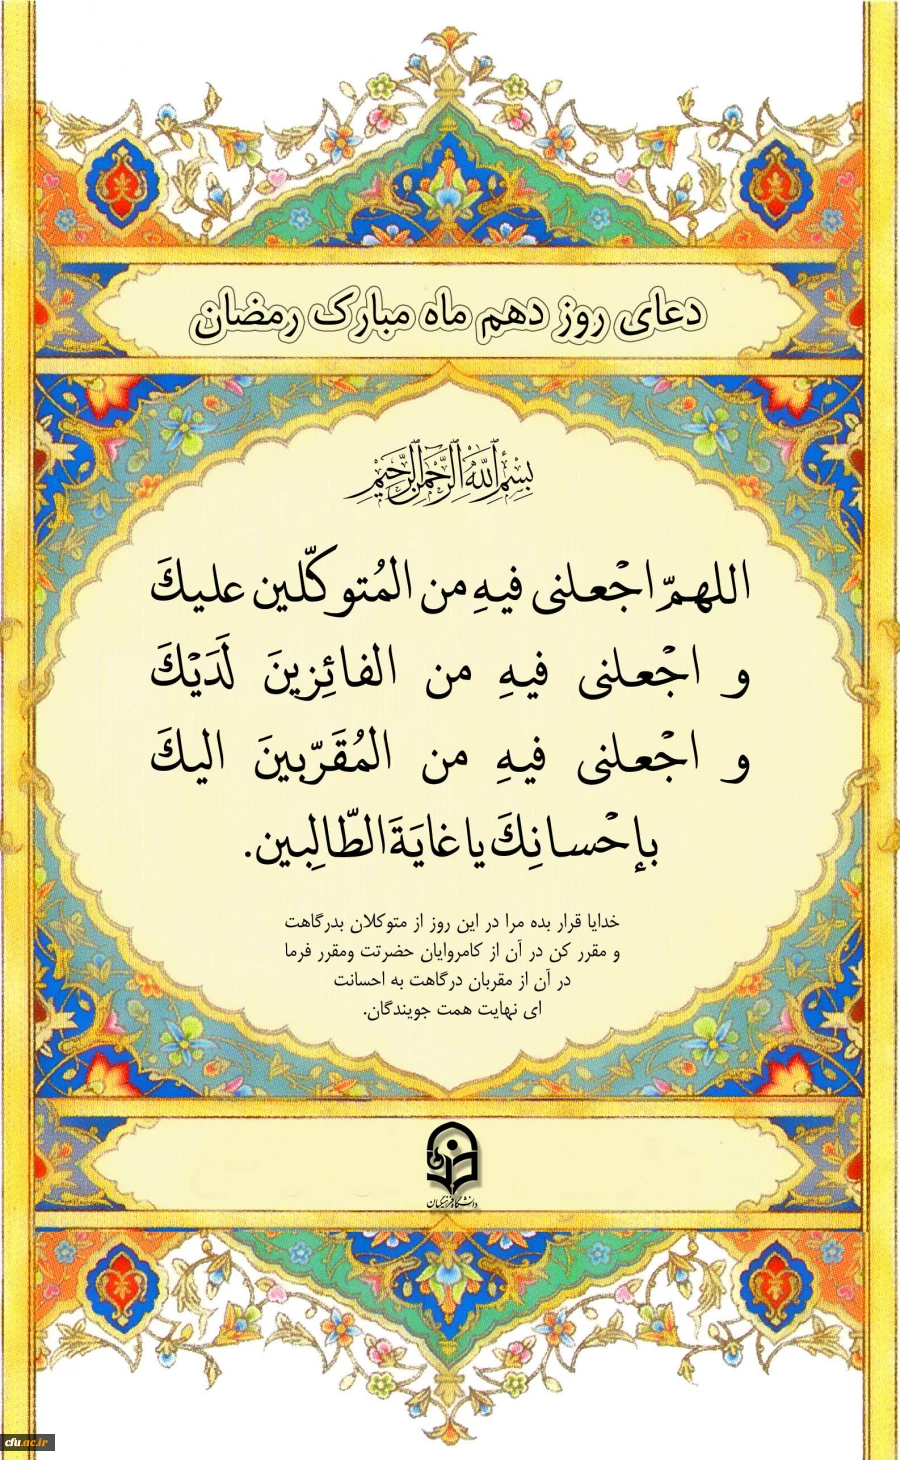 دعای روز دهم ماه مبارک رمضان
بِسْمِ ٱللَّهِ ٱلرَّحْمَٰنِ ٱلرَّحِيمِ
اللهمّ اجْعلنی فیهِ من المُتوکّلین علیكَ
و اجْعلنی فیهِ من الفائِزینَ لَدَیْكَ
و اجْعلنی فیهِ من المُقَرّبینَ الیكَ
بإحْسانِكَ یا غایَةَ الطّالِبین.
خدایا قرار بده مرا در این روز از متوکلان بدرگاهت
و مقرر کن در آن از کامروایان حضرتت ومقرر فرما
در آن از مقربان درگاهت به احسانت
ای نهایت همت جویندگان.
دانشگاه فرهنگیان
cfu.ac.ir